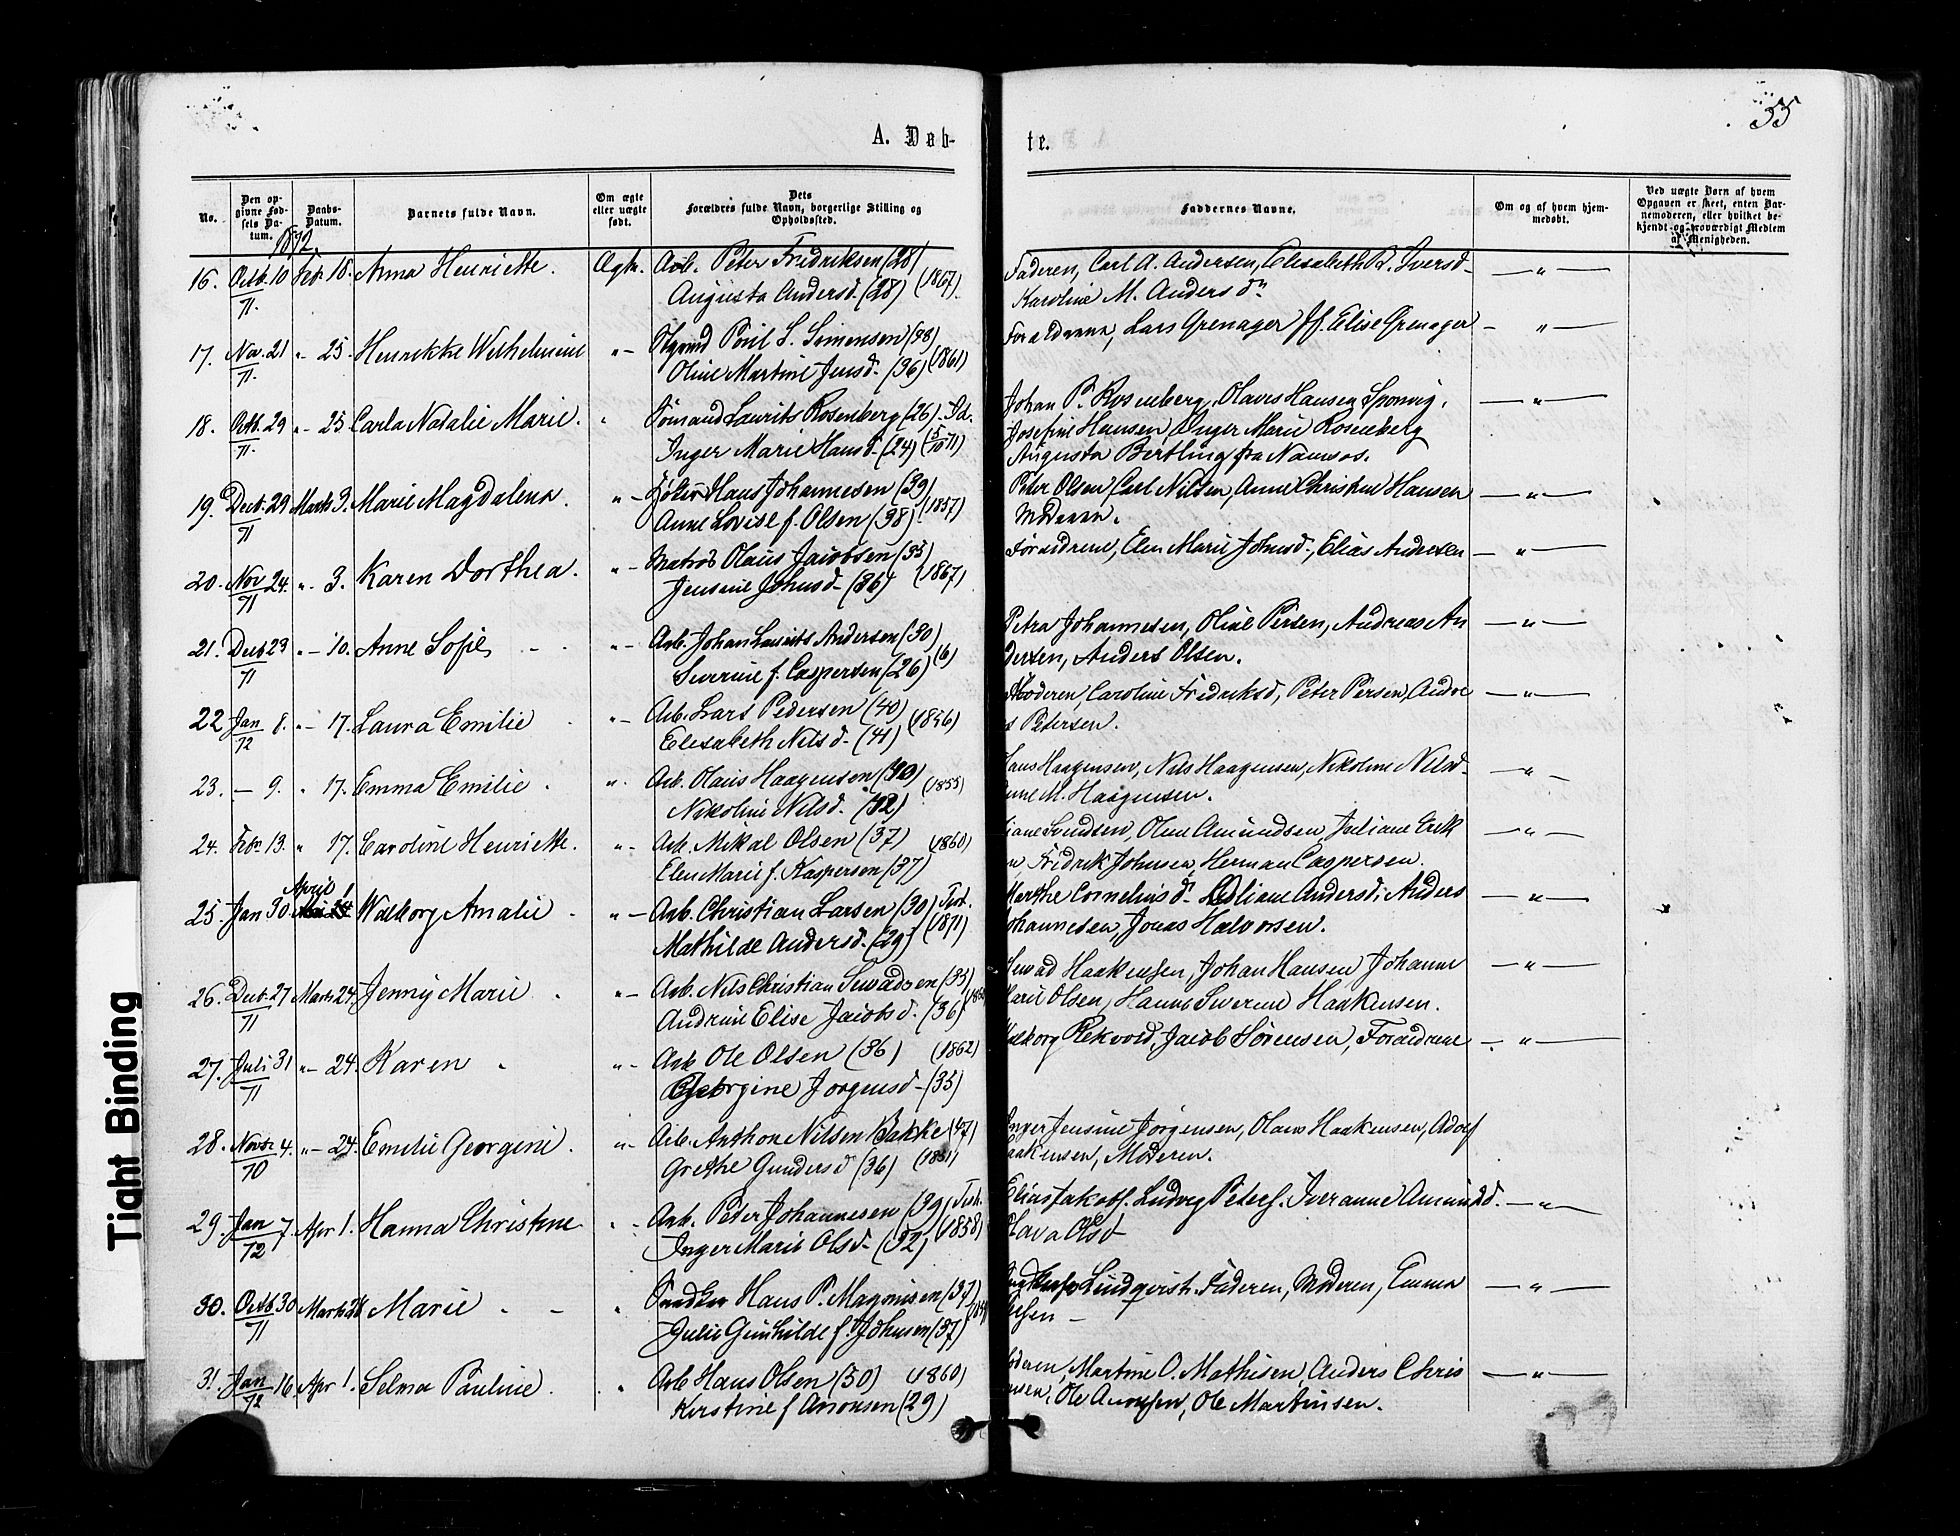 55
A. Døb-
te.
No.
Den op-
givne Fød-
sels Da-
tum.
Daabs-
Datum.
Barnets fulde Navn.
Om ægte
eller uægte
født.
Dets
Forældres fulde Navn, borgerlige Stilling og
Opholdssted.
Faddernes Navne.
Om og af hvem hjem-
medøbt.
Ved uægte Børn af hvem
Opgaven er skeet, enten Bar-
nemoderen, eller hvilket be-
kjendt og troværdigt Medlem
af Menigheden.
1872.
16. Octb. 10/71. Feb 18. Anna Henriette. Ægte. Arb. Peter Fredriksen (28)
Augusta Andersd. (28) (1867).
Faderen, Carl A. Andersen, Elisabeth B. Iversd- — " —
Karoline M. Andersdn
17. Nov. 21/71. " – 25 Henrikke Wilhelmine " – Poul S. Simensen (38)
Oline Martine Jensd. (36) (1861)
Forældrene, Lars Grenager Jf. Elise Grenager – " —
18. Octb. 29/71. " – 25 Carla Natalie Marie. " Sømand Laurits Rosenberg (26)
Inger Marie Hansd. (24) (5/10 71)
Johan P. Rosenberg, Olaves Hansen Sponvig, — " —
Josefine Hansen, Inger Marie Rosenberg
Augusta Bertling fra Namsos.
19. Decb. 29/71 Marts 3. Marie Magdalena. " – Hans Johannesen (39)
Anne Lovise f. Olsen (38) (1857)
Peter Olsen, Carl Nilsen, Anne Christine Hansen — " —
Moderen.
20. Nov 24./71 " – 3. Karen Dorthea. " – Matros Olaus Jacobsen (35)
Jensine Johnsd. (36) (1867)
Forældrene, Elen Marie Johnsd., Elias Andresen — " —
21. Decb 23/71 " – 10. Anne Sofie " – Arb. Johan Laurits Andersen (30)
Severine f. Caspersen (26) (6)
Petra Johannesen, Oline Persen, Andreas An — " —
dersen, Anders Olsen.
22 Jan 8./72 " – 17. Laura Emilie " – Arb. Lars Pedersen (40)
Elesabeth Nilsd. (41) (1856)
Moderen, Caroline Fredriksd, Peter Persen, Andre — " —
s Petersen.
23. – 9. " 17. Emma Emilie. " . Arb. Olaus Haagensen (40)
Nikoline Nilsd. (42) (1855)
Hans Haagensen, Nils Haagensen, Nikoline Nilsd- — " –
M. Haagensen.
24. Feb. 13. " 17. Caroline Henriette. " – Arb. Mikal Olsen (37) (1860)
Elen Marie f. Kaspersen (37)
Svendsen, Oline Amundsen, Juliane Erik — " —
Fredrik Johnsen, Herman Caspersen.
25. Jan 30 April 1 Walborg Amalie. " – Arb. Christian Larsen (30)
Mathilde Andersd. (29) (1871)
Marthe Corneliusd. Andersd., Anders — " —
Johannesen, Jonas Halvorsen.
26. Decb. 27/71 Marts 24. Jenny Marie. " – Arb. Nils Christian (35)
Andrine Elise Jacobsd. (36)
Haakensen, Johan Hansen Johanne — " —
Marie Olsen, Hanne Severine Haakensen.
27. Juli 31/71 " – 24. Karen " – Arb Ole Olsen (36) (1862)
Georgine Jørgensd– (35)
Walborg Rekvold, Jacob Sørensen, Forældrene – " —
28. Novbr 4./70 " – 24. Emilie Georgine. " – Arb. Anthon Nilsen Bakke (47)
Grethe Gundersd (36)
Inger Jensine Jørgensen, Olaus Haakensen, Adolf
Haakensen, Moderen.
29. Jan 7./72 Apr 1. Hanna Christine " – Arb. Peter Johannesen (39)
Inger Marie Olsd. (32) (1858)
Elias Jakobs. Ludvig Peters. Iveranne Amundsd. — " —
Olava Olsd
30. Octb. 30/71 Marts 28 Marie. " Hans P. Magnusen (37)
Julie Gunhilde f. Johnsen (37)
Lindqvist. Faderen, Moderen, Emma — " —
31. Jan 16/72 Apr 1. Selma Pauline. " Arb Hans Olsen (30) (1860)
Kirstine f Aronsen (29)
Moderen, Martine O. Mathisen, Anders Chris — " —
Ole Aronsen, Ole Martinsen.
Tight Binding